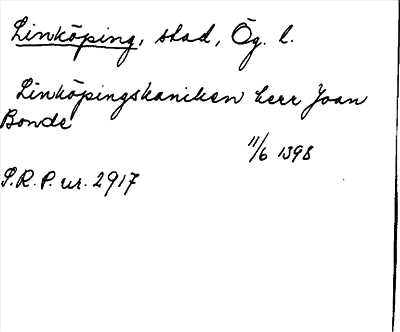 Linköping, stad, Ög. l.
Linköpingskaniken herr Joan
Bonde
11/6 1398
S.R.P. nr. 2917